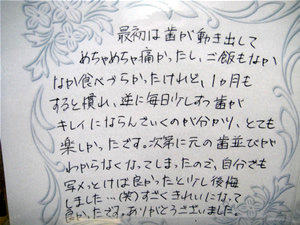 最初は歯が動き出して
めちゃめちゃ痛かったし、ご飯もなか
なか食べづらかったけれど、1ヶ月も
すると慣れ、逆に毎日少しずつ歯が
キレイにならんでいくのが分かり、とても
楽しかったです。次第に元の歯並びが
わからなくなってしまったので、自分でも
写メっとけば良かったと少し後悔
しました…(笑)すごくきれいになって
良かったです。ありがとうございました。